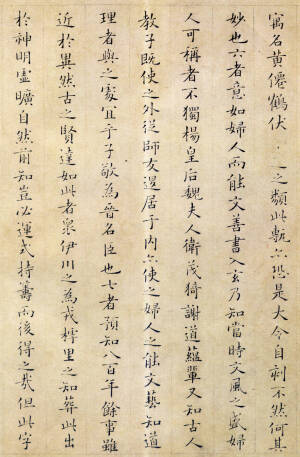 寓名黄僊鶴伏之類此軌六恐是大令自刺不然何其
妙也六者意如婦人而能文善書入玄乃知當時文風之盛婦
人可稱者不獨楊皇后魏夫人衛茂漪謝道蘊輩又知古人
教子既使之外從師友還居于内六使之婦人之能文藝知道
理者與之處宜乎子敬為晉名臣也七者預知八百年餘事雖
近於異然古之賢達如此者衆伊川之為戎樗里之知葬此出
於神明虛曠自然前知豈必運式持籌而後得之哉但此字